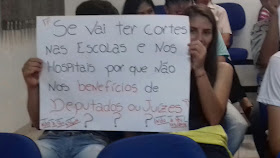 "Se vai ter cortes
nas Escolas e nos
Hospitais por que não
nos benefícios de
Deputados ou Juízes"
? ? ?